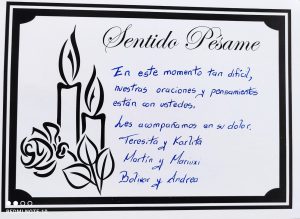 Sentido Pésame
En este momento tan difícil,
nuestras oraciones y pensamientos
están con ustedes.
Les acompañamos en su dolor.
Teresita y Karlita
Martín y Mariuxi
Bolivar y Andrea
REDMI NOTE